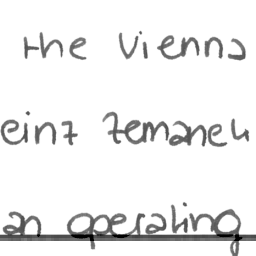 the Vienna
einz Zemanek
an operating